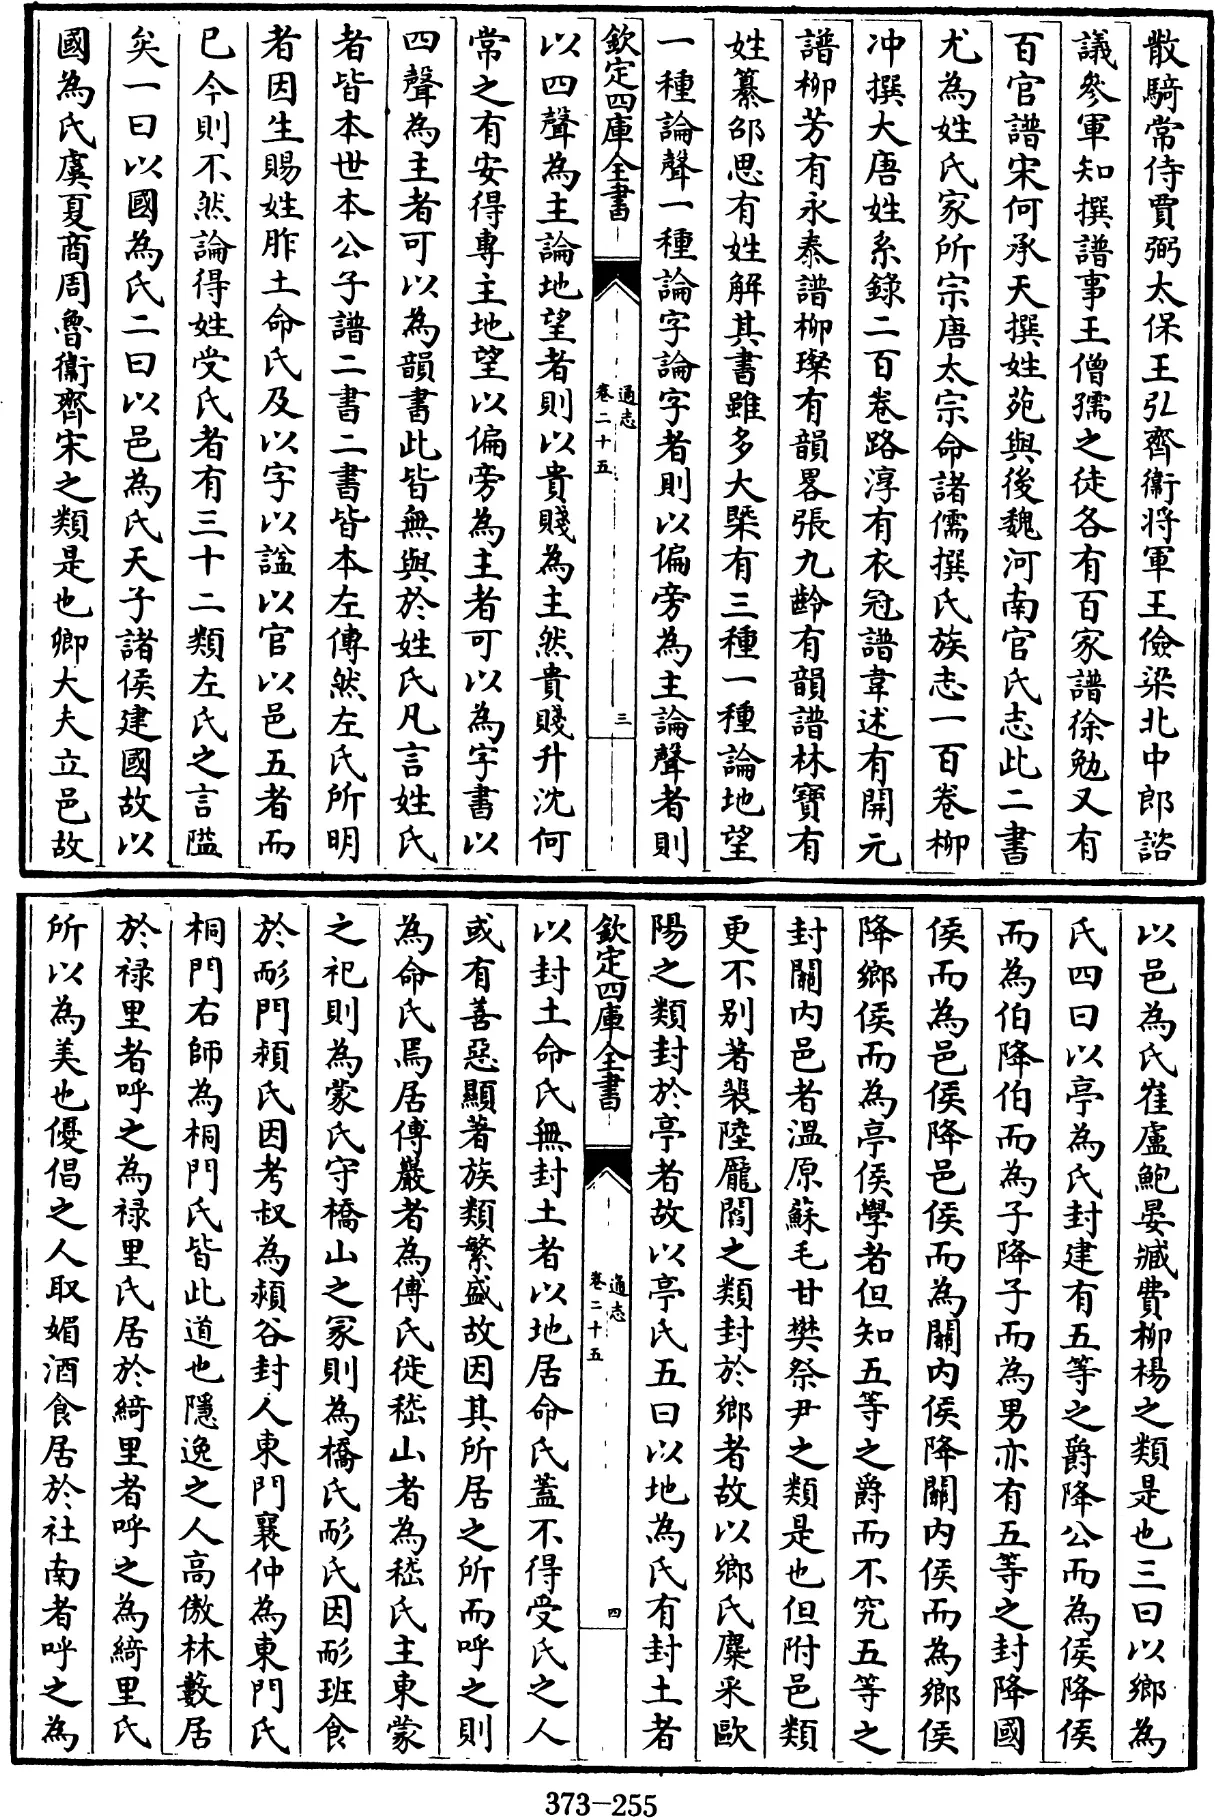 散騎常侍賈弼太保王弘齊衞將軍王儉梁北中郎諮
議參軍知撰譜事王僧孺之徒各有百家譜徐勉又有
百官譜宋何承天撰姓苑與後魏河南官氏志此二書
尤為姓氏家所宗唐太宗命諸儒撰氏族志一百卷柳
冲撰大唐姓系錄二百卷路淳有衣冠譜韋述有開元
譜柳芳有永泰譜柳璨有韻畧張九齡有韻譜林寶有
姓纂邵思有姓解其書雖多大槩有三種一種論地望
一種論聲一種論字論字者則以偏旁為主論聲者則
欽定四庫全書
通志
卷二十五
三
以四聲為主論地望者則以貴賤為主然貴賤升沈何
常之有安得專主地望以偏旁為主者可以為字書以
四聲為主者可以為韻書此皆無與於姓氏凡言姓氏
者皆本世本公子譜二書二書皆本左傳然左氏所明
者因生賜姓胙土命氏及以字以諡以官以邑五者而
已今則不然論得姓受氏者有三十二類左氏之言隘
矣一曰以國為氏二曰以邑為氏天子諸侯建國故以
國為氏虞夏商周魯衞齊宋之類是也卿大夫立邑故
以邑為氏崔盧鮑晏臧費柳楊之類是也三曰以鄉為
氏四曰以亭為氏封建有五等之爵降公而為侯降侯
而為伯降伯而為子降子而為男亦有五等之封降國
侯而為邑侯降邑侯而為關内侯降關内侯而為鄉侯
降鄉侯而為亭侯學者但知五等之爵而不究五等之
封關内邑者溫原蘇毛甘樊祭尹之類是也但附邑類
更不别著裴陸龎閻之類封於鄉者故以鄉氏麋采歐
陽之類封於亭者故以亭氏五曰以地為氏有封土者
欽定四庫全書
通志
卷二十五
四
以封土命氏無封土者以地居命氏蓋不得受氏之人
或有善惡顯著族類繁盛故因其所居之所而呼之則
為命氏焉居傅巖者為傅氏徙嵇山者為嵇氏主東蒙
之祀則為蒙氏守橋山之冢則為橋氏耏氏因耏班食
於耏門潁氏因考叔為潁谷封人東門襄仲為東門氏
桐門右師為桐門氏皆此道也隱逸之人高傲林藪居
於禄里者呼之為禄里氏居於綺里者呼之為綺里氏
所以為美也優倡之人取媚酒食居於社南者呼之為
373-255